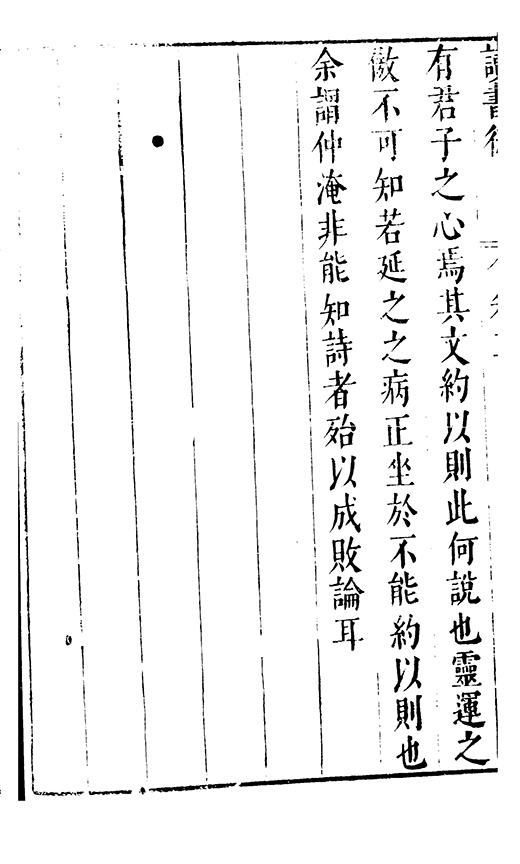 讀書後
有君子之心焉其文約以則此何說也靈運之
傲不可知若延之之病正坐於不能約以則也
余謂仲淹非能知詩者殆以成敗論耳